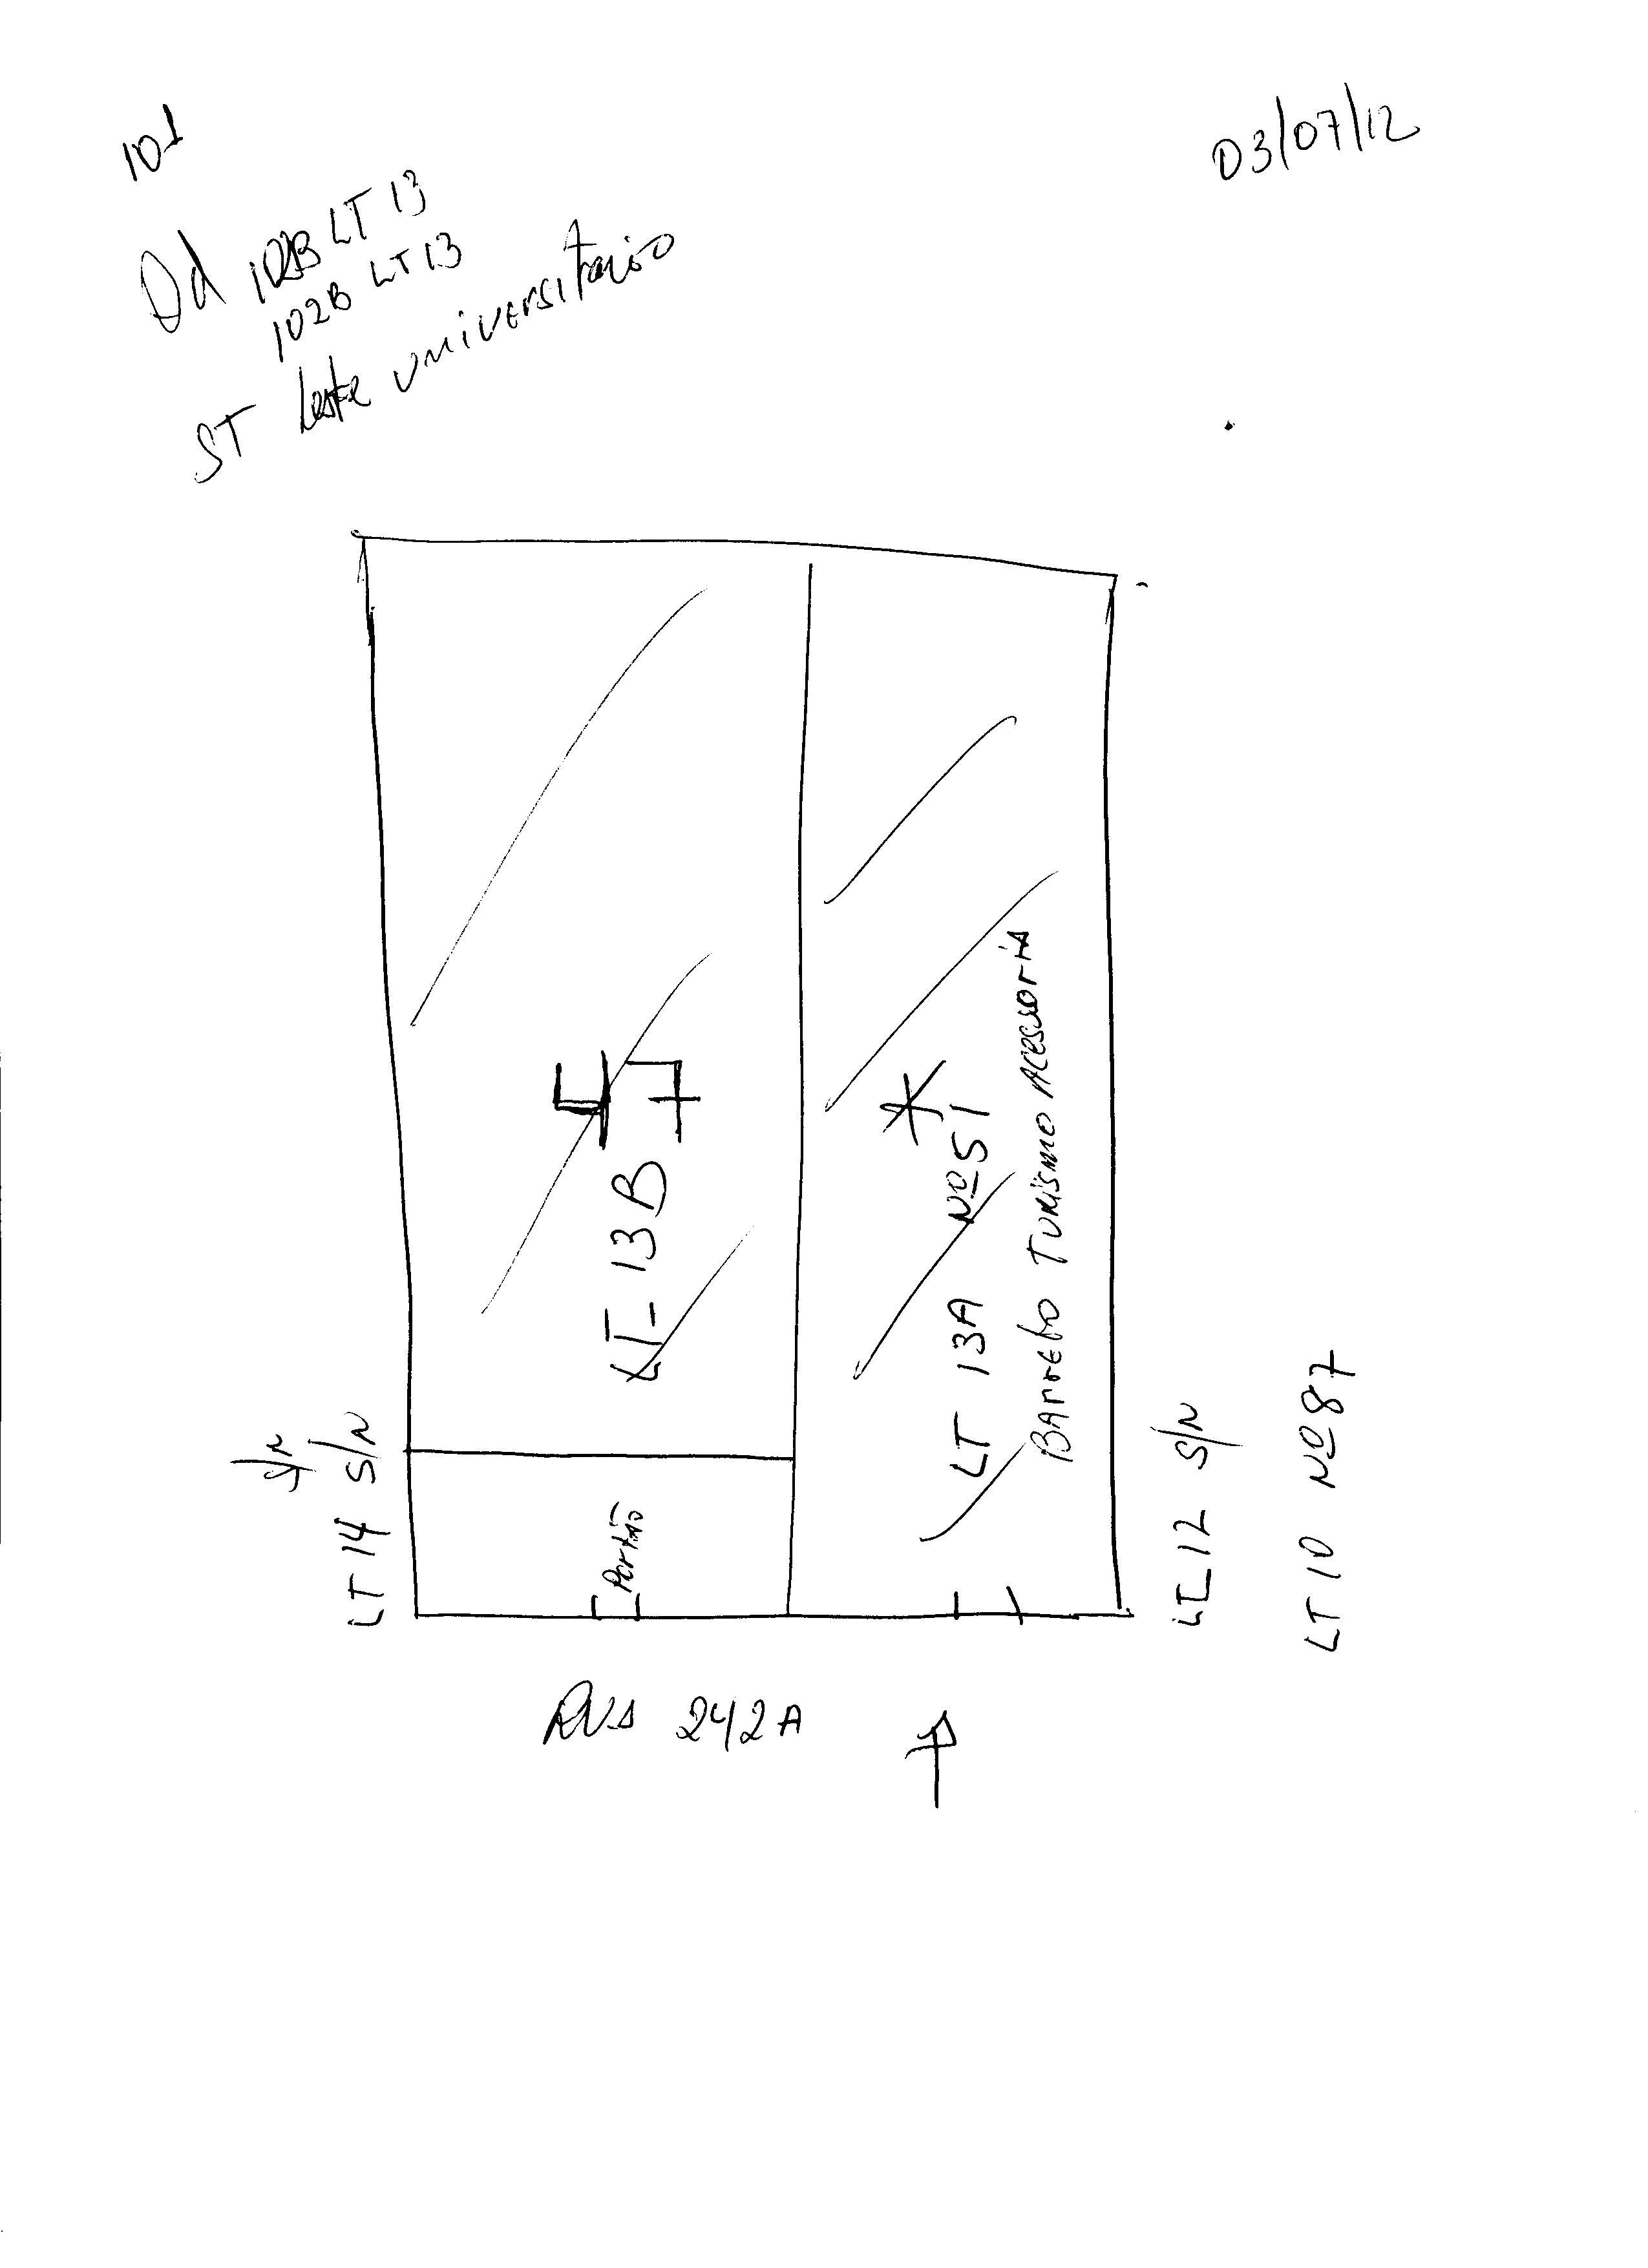 101
03/07/12
Qd 102B LT 13
102B LT 13
ST Leste universitario
LT 14 S/N
S/N
LT-13B
47
Portão
LT 13A Nº 51
Barreto Turismo Acessoria
LT 12 S/N
LT 10 Nº 87
RUA 242A